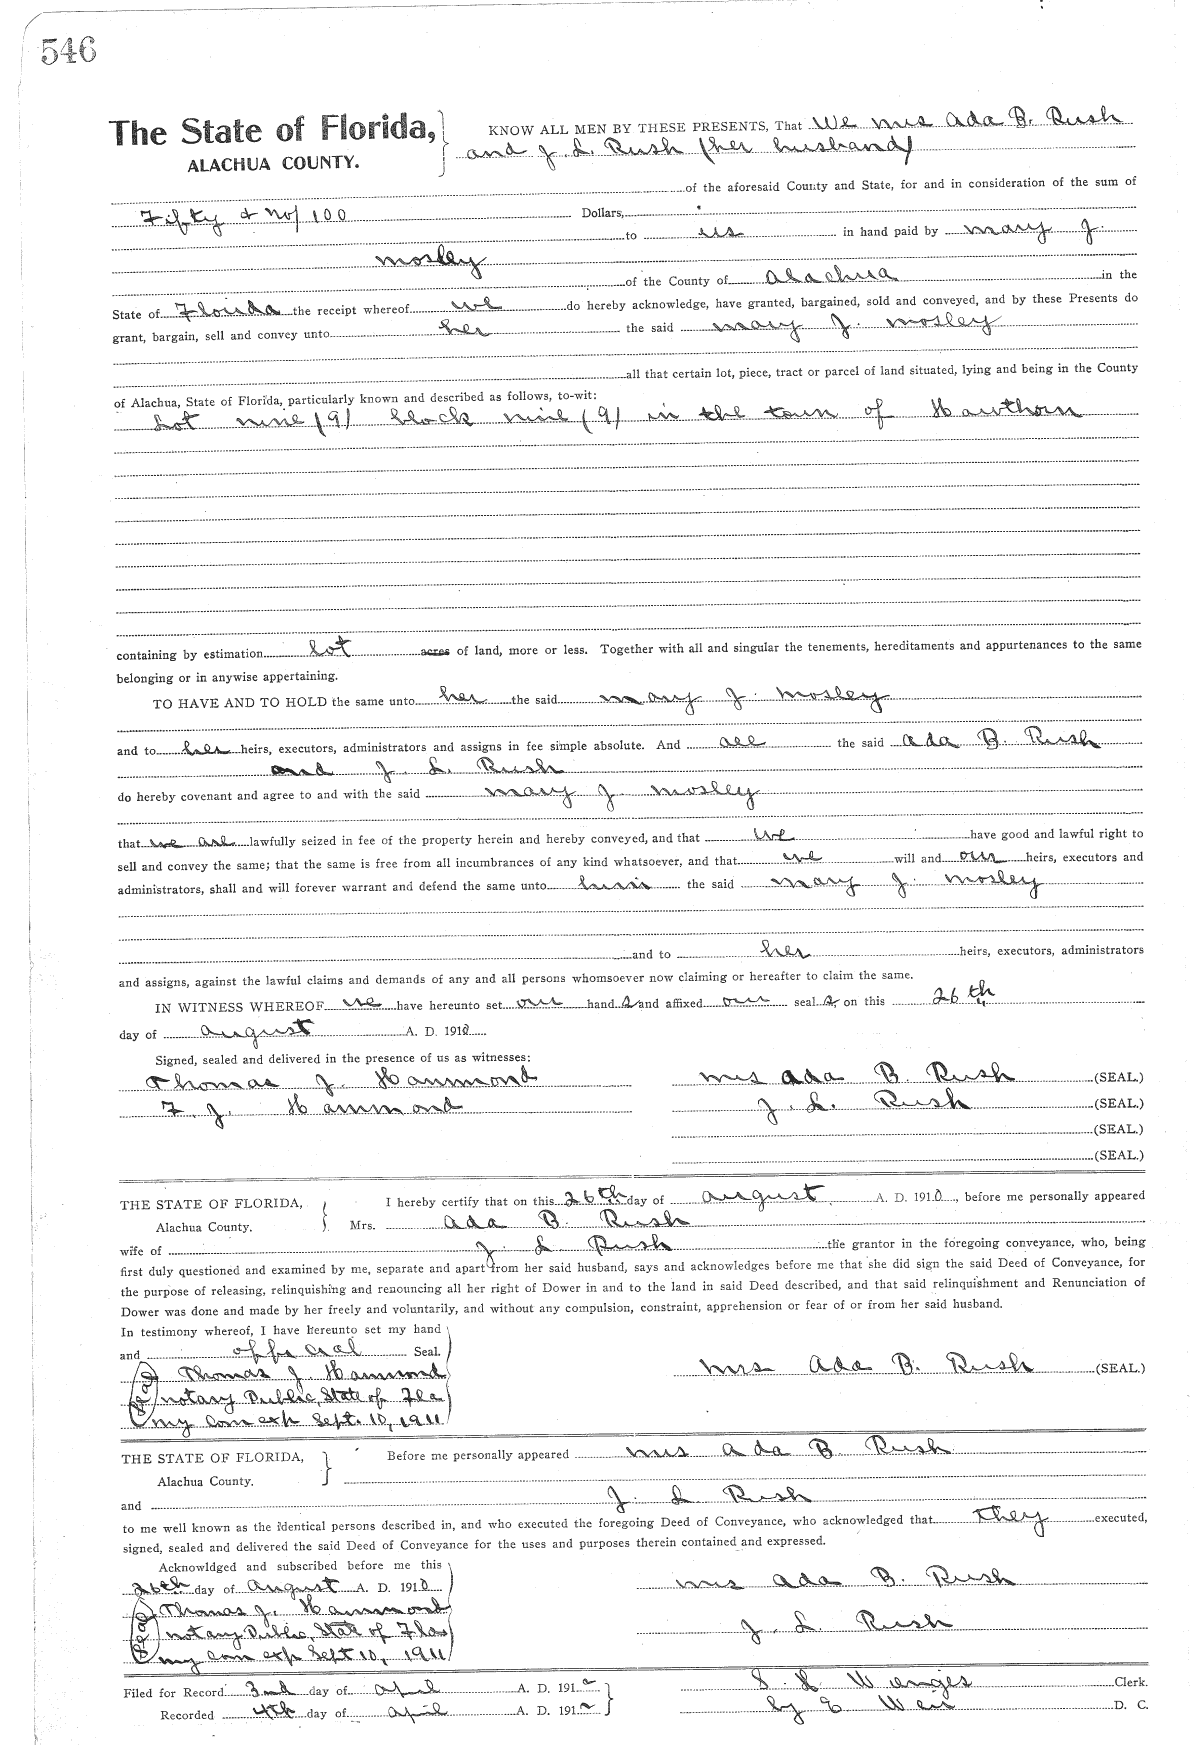 546
The State of Florida, KNOW ALL MEN BY THESE PRESENTS, That We mrs Ada B. Rush
ALACHUA COUNTY. and J. L. Rush (her husband)
of the aforesaid County and State, for and in consideration of the sum of
Fifty & No/100 Dollars,
to us in hand paid by mary J.
mosley of the County of Alachua in the
State of Florida the receipt whereof we do hereby acknowledge, have granted, bargained, sold and conveyed, and by these Presents do
grant, bargain, sell and convey unto her the said mary J. mosley
all that certain lot, piece, tract or parcel of land situated, lying and being in the County
of Alachua, State of Florida, particularly known and described as follows, to-wit:
Lot nine (9) block nine (9) in the town of Hawthorn
containing by estimation Lot acres of land, more or less. Together with all and singular the tenements, hereditaments and appurtenances to the same
belonging or in anywise appertaining.
TO HAVE AND TO HOLD the same unto her the said mary J. mosley
and to her heirs, executors, administrators and assigns in fee simple absolute. And the said Ada B Rush
and J. L. Rush
do hereby covenant and agree to and with the said mary J mosley
that we are lawfully seized in fee of the property herein and hereby conveyed, and that we have good and lawful right to
sell and convey the same; that the same is free from all incumbrances of any kind whatsoever, and that we will and our heirs, executors and
administrators, shall and will forever warrant and defend the same unto the said mary J. mosley
and to her heirs, executors, administrators
and assigns, against the lawful claims and demands of any and all persons whomsoever now claiming or hereafter to claim the same.
IN WITNESS WHEREOF we have hereunto set our hand s and affixed our seal s on this 26th
day of August A. D. 1910
Signed, sealed and delivered in the presence of us as witnesses:
Thomas J. Hammond mrs Ada B Rush (SEAL.)
F. J. Hammond J. L. Rush (SEAL.)
(SEAL.)
(SEAL.)
THE STATE OF FLORIDA, I hereby certify that on this 26th day of August A. D. 1910, before me personally appeared
Alachua County. Mrs. Ada B. Rush
wife of J. L Rush the grantor in the foregoing conveyance, who, being
first duly questioned and examined by me, separate and apart from her said husband, says and acknowledges before me that she did sign the said Deed of Conveyance, for
the purpose of releasing, relinquishing and renouncing all her right of Dower in and to the land in said Deed described, and that said relinquishment and Renunciation of
Dower was done and made by her freely and voluntarily, and without any compulsion, constraint, apprehension or fear of or from her said husband.
In testimony whereof, I have hereunto set my hand
and official Seal.
Seal Thomas J. Hammond mrs Ada B. Rush (SEAL.)
notary Public, State of Fla
my com exp Sept. 10, 1911
THE STATE OF FLORIDA, Before me personally appeared mrs Ada B Rush
Alachua County.
and J. L Rush
to me well known as the identical persons described in, and who executed the foregoing Deed of Conveyance, who acknowledged that they executed,
signed, sealed and delivered the said Deed of Conveyance for the uses and purposes therein contained and expressed.
Acknowldged and subscribed before me this
26th day of August A. D. 1910 mrs Ada B. Rush
Seal Thomas J. Hammond
notary Public, State of Fla J. L. Rush
my com exp Sept 10, 1911
Filed for Record 3rd day of April A. D. 1912 S. H Wienges Clerk.
Recorded 4th day of April A. D. 1912 by E Weir D. C.